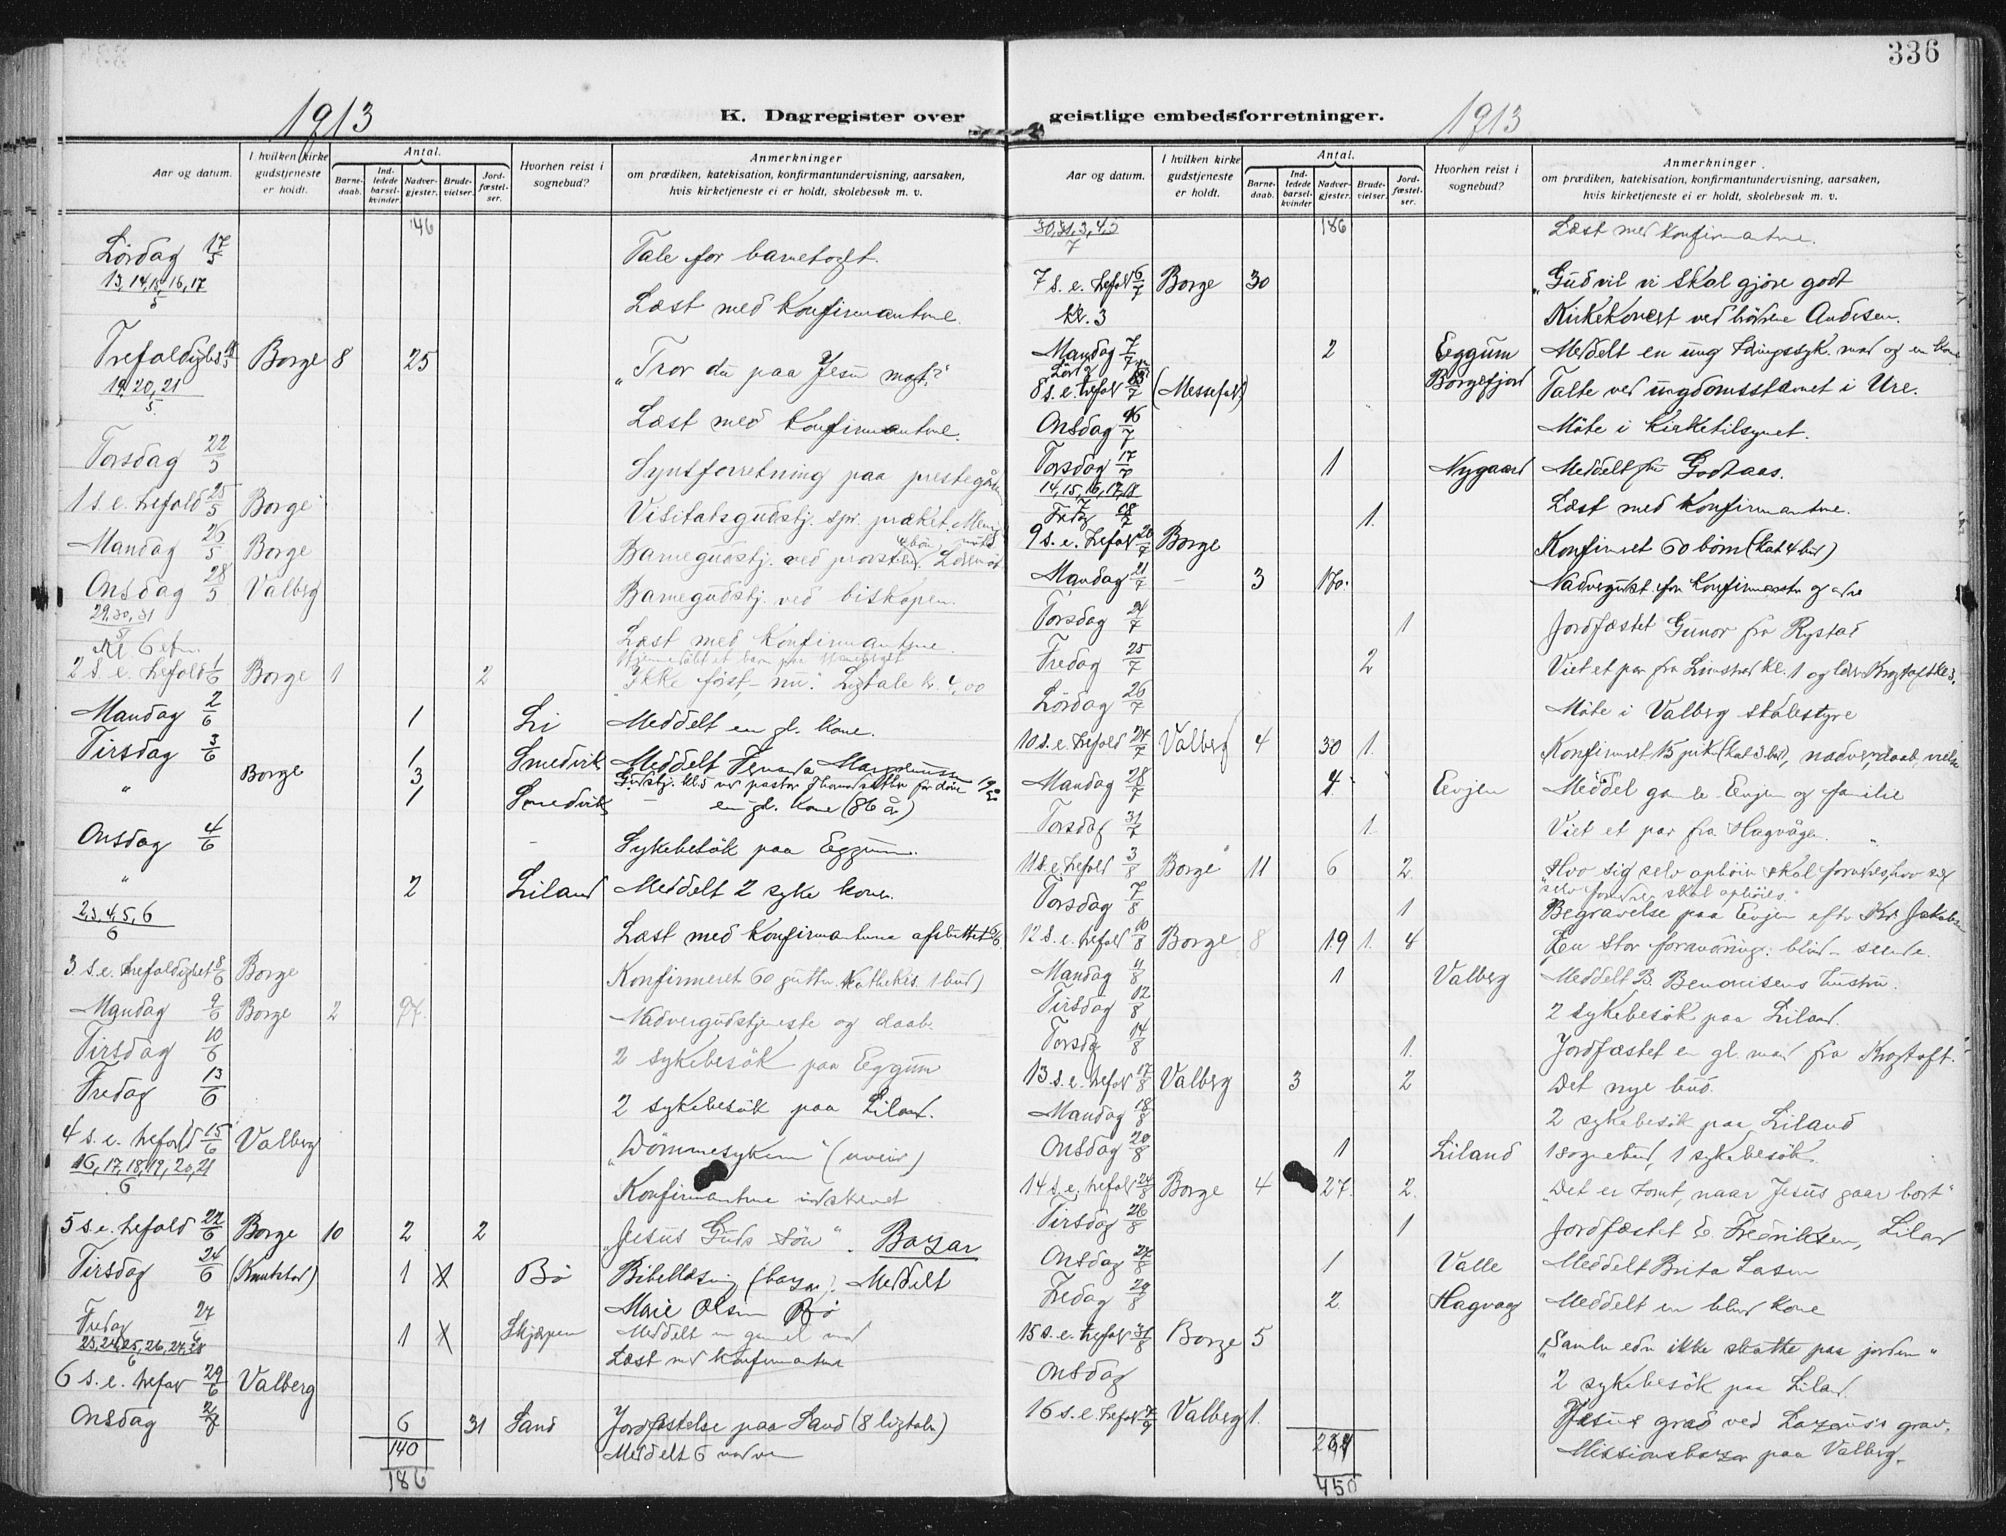 336
1913
K. Dagregister over
geistlige embedsforretninger.
1913
Aar og datum.
I hvilken kirke gudstjeneste er holdt.
Antal.
Barne-daab.
Ind-ledede barsel-kvinder.
Nadver-gjester.
Brude-vielser.
Jord-fæstel-ser.
Hvorhen reist i sognebud?
Anmerkninger
om prædiken, katekisation, konfirmantundervisning, aarsaken,
hvis kirketjeneste ei er holdt, skolebesøk m. v.
46
Lördag 17/5 Tale for barnetogt.
13, 14, 15, 16, 17/5 Læst med konfirmantene.
Trefoldighed 18/5 Borge 8 25 "Tror du paa Jesu magt?"
19, 20, 21/5 Læst med konfirmantene.
Torsdag 22/5 Synsforretning paa prestegården
1 s. e. trefold 25/5 Borge Visitatsgudstj.
Mandag 26/5 Borge Barnegudstj. ved prosten
Onsdag 28/5 Valberg Barnegudstj. ved biskopen.
29, 30, 31/5 Læst med konfirmantene.
Kl 6 efm.
2 s. e. trefold 1/6 Borge 1 2 "Ikke först – nu". Ligtale kr. 4,00
Mandag 2/6 1 Li Meddelt en gl. kone.
Tirsdag 3/6 1 Smedvik Meddelt
" Borge 3
1 Smedvik – en gl. kone (86 år)
Onsdag 4/6 Sykebesök paa Eggum.
" 2 Liland Meddelt 2 syke koner.
2, 3, 4, 5, 6/6 Læst med konfirmantene afsluttet 6/6
3. s. e. trefoldighet 8/6 Borge Konfirmeret 60 gutter. (Kathekes. 1 bud)
Mandag 9/6 Borge 2 97. Nadvergudstjeneste og daab.
Tirsdag 10/6 2 sykebesök paa Eggum
Fredag 13/6 2 sykebesök paa Liland.
4 s. e. trefold 15/6 Valberg "Dömmesyken" (uveir)
16, 17, 18, 19, 20, 21/6 Konfirmantene indskrevet
5 s. e. trefold 22/6 Borge 10 2 2 "Jesus Guds sön". Bazar
Tirsdag 24/6 (Knutstad) 1 X Bö Bibellæsning (bazar). Meddelt
Marie Olsen Bö
Fredag 27/6 1 X Skjærpen Meddelt en gammel mand
23, 24, 25, 26, 27, 28/6 Læst med konfirmantene
6 s. e. trefol 29/6 Valberg
Onsdag 2/7 6 31 Sand Jordfæstelse paa Sand (8 ligtaler)
140 Meddelt 6 nadver
186
Aar og datum.
I hvilken kirke gudstjeneste er holdt.
Antal.
Barne-daab.
Ind-ledede barsel-kvinder
Nadver-gjester.
Brude-vielser.
Jord-fæstel-ser.
Hvorhen reist i sognebud?
Anmerkninger
om prædiken, katekisation, konfirmantundervisning, aarsaken,
hvis kirketjeneste ei er holdt, skolebesøk m. v.
186 Læst med konfirmantene.
7 s. e. trefol 6/7 Borge 30 "Gud vil vi skal gjöre godt
kl. 3 Kirkekoncert ved brödrene Andersen.
Mandag 7/7 2 Eggum Meddelt en ung
8 s. e. trefol 13/7 Borgefjord Talte ved ungdomsstevnet i Ure.
Onsdag 16/7 Möte i kirketilsynet.
Torsdag 17/7 1 Nygaard Meddelt fru Godtaas.
14, 15, 16, 17, 18/7 Læst med konfirmantene.
Fredag 18/7 1.
9 s. e. trefol 20/7 Borge Konfirmeret 60 börn (kat 4 bud)
Mandag 21/7 – 3 170.
Torsdag 24/7 1 Jordfæstet Gunor fra Rystad
Fredag 25/7 2 Viet et par fra Limstrand kl. 1 og
Lördag 26/7 Möte i Valberg skolestyre
10 s. e. trefold 27/7 Valberg 4 30 1.
Mandag 28/7 4 Evjen Meddel gamle Evjen og familie
Torsdag 31/7 1. Viet et par fra Hagvågen.
11 s. e. trefold 3/8 Borge 11 6 2. "Hvo sig selv ophöier skal fornedres, hvo sig
selv fornedrer, skal ophöies."
Torsdag 7/8 1 Begravelse paa Evjen efter Kr. Jakobsen
12 s. e. trefol 10/8 Borge 8 19 1. 4 En stor forandring: blind – seende.
Mandag 11/8 1 Valberg Meddelt B. Benonisens hustru.
Tirsdag 12/8 2 sykebesök paa Liland.
Torsdag 14/8 1. Jordfæstet en gl. mand fra Krystoft.
13 s. e. trefol 17/8 Valberg 3 2 Det nye bud.
Mandag 18/8 2 sykebesök paa Liland
Onsdag 20/8 1 Liland 1 sognebud, 1 sykebesök.
14 s. e. trefol 24/8 Borge 4 27. 2. "Det er tomt, naar Jesus gaar bort"
Tirsdag 26/8 1 Jordfæstet E. Fredriksen, Liland
Onsdag 27/8 1 Valle Meddelt Brita Lasen
Fredag 29/8 2. Hagvag Meddelt en blind kone
15 s. e. trefol 31/8 Borge 5 "Samler eder ikke skatte paa jorden"
Onsdag 2 sykebesök paa Liland.
16 s. e. trefol 7/9 Valberg 1. Jesus graad ved Lazarus's grav.
Missionsbazar paa Valberg.
450